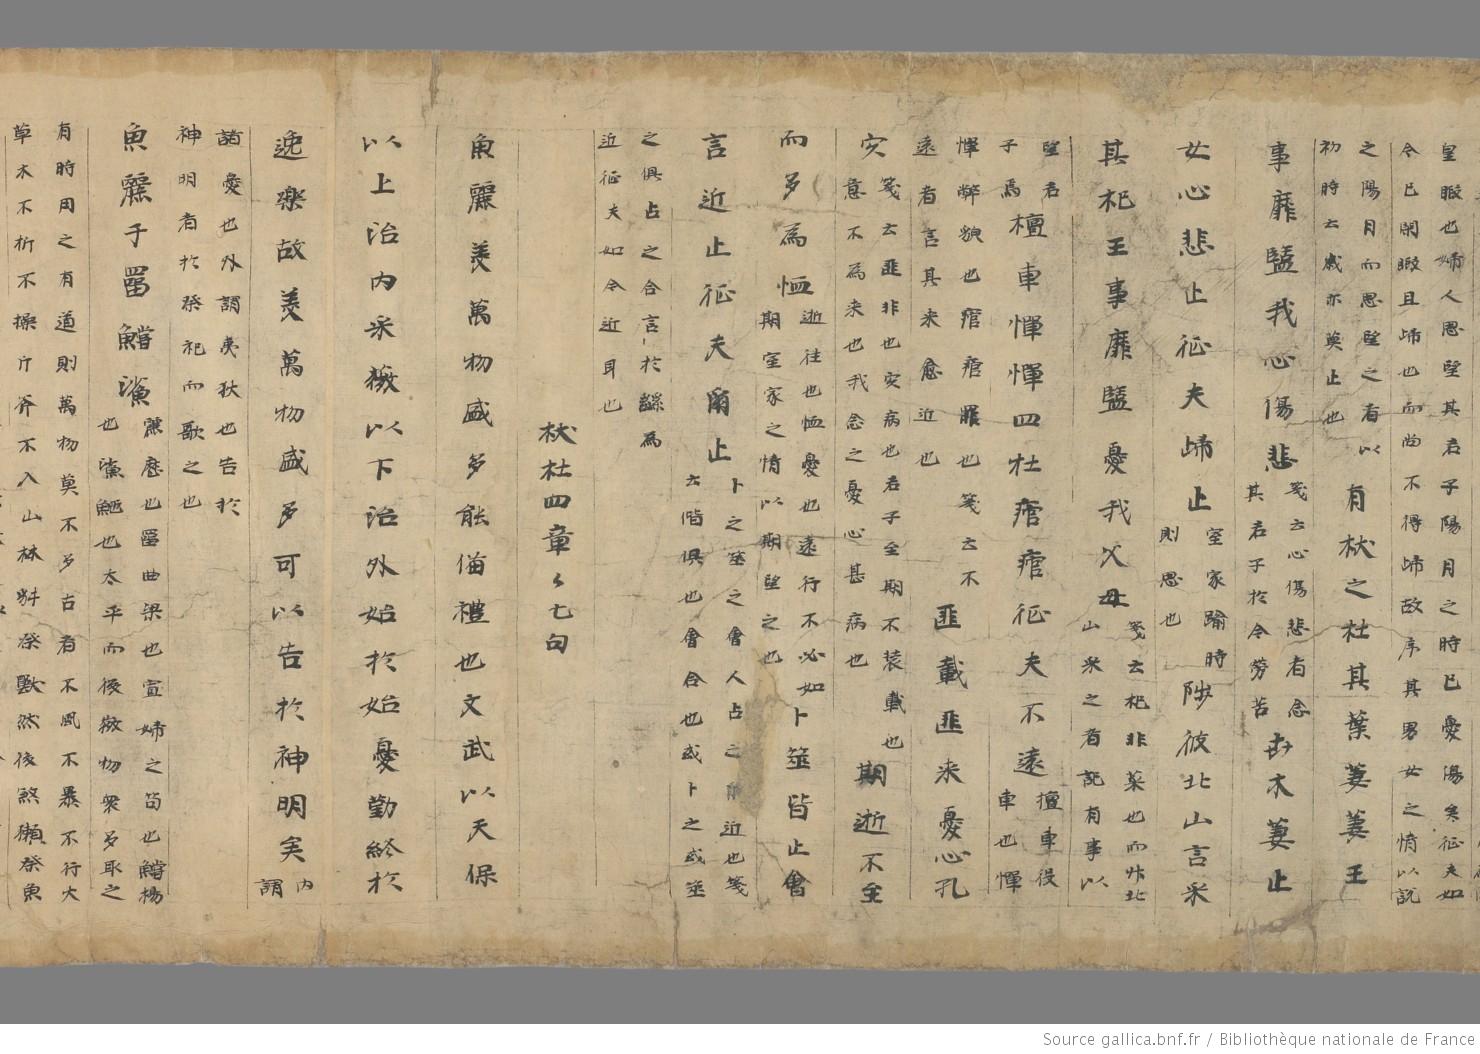 皇暇也婦人思望其君子陽月之時已憂傷矣征夫如
今已閑暇且歸也而尚不得歸故序其男女之情以說
之陽月而思望之者以
初時云歲亦莫止也
有杕之杜其葉萋萋王
事靡盬我心傷悲
箋云心傷悲者念
其君子於今勞苦
卉木萋止
女心悲止征夫歸止
室家踰時
則思也
陟彼北山言采
其杞王事靡盬憂我父母
箋云杞非菜也而升北
山采之者託有事以
望君
子焉
檀車幝幝四牡痯痯征夫不遠
檀車役
車也幝
幝弊貌也痯痯罷也箋云不
遠者言其來愈近也
匪載匪來憂心孔
疚
箋云匪非也疚病也君子至期不裝載也
意不為來也我念之憂心甚病也
期逝不至
而多為恤
逝往也恤憂也遠行不必如
期室家之情以期望之也
卜筮皆止會
言近止征夫爾止
卜之筮之會人占之 近也箋
云偕俱也會合也或卜之或筮
之俱占之合言於繇為
近征夫如今近耳也
杕杜四章々七句
魚麗美萬物盛多能俻禮也文武以天保
以上治內采薇以下治外始於始憂勤終於
逸樂故美萬物盛多可以告於神明矣
內
謂
諸憂也外謂夷狄也告於
神明者於祭祀而歌之也
魚麗于罶鱨鯊
麗歷也罶曲梁也宣婦之笱也鱨楊
也鯊鮀也太平而後微物衆多取之
有時用之有道則萬物莫不多古者不風不暴不行火
草木不折不操斤斧不入山林豺祭獸然後煞獺祭魚
Source gallica.bnf.fr / Bibliothèque nationale de France